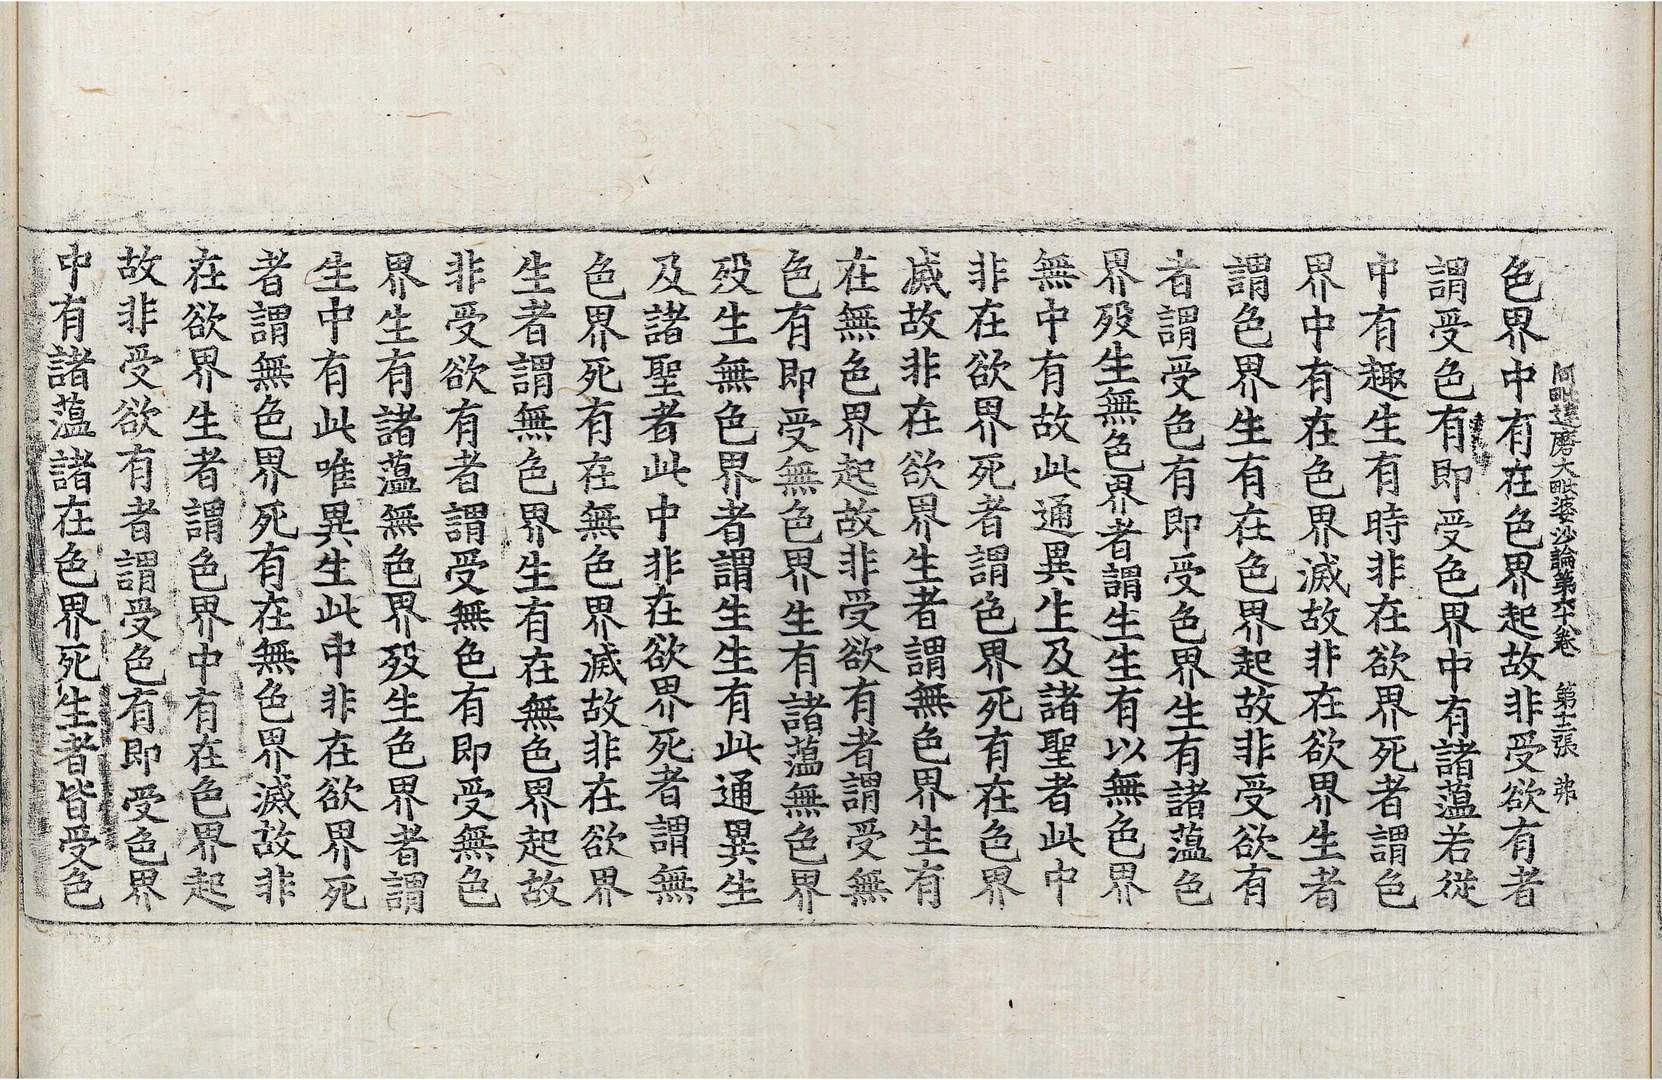 阿毗達磨大毗婆沙論第六十八卷 第十三張 弗
色界中有在色界起故非受欲有者
謂受色有即受色界中有諸薀若從
中有趣生有時非在欲界死者謂色
界中有在色界滅故非在欲界生者
謂色界生有在色界起故非受欲有
者謂受色有即受色界生有諸薀色
界歿生無色界者謂生生有以無色界
無中有故此通異生及諸聖者此中
非在欲界死者謂色界死有在色界
滅故非在欲界生者謂無色界生有
在無色界起故非受欲有者謂受無
色有即受無色界生有諸薀無色界
歿生無色界者謂生生有此通異生
及諸聖者此中非在欲界死者謂無
色界死有在無色界滅故非在欲界
生者謂無色界生有在無色界起故
非受欲有者謂受無色有即受無色
界生有諸薀無色界歿生色界者謂
生中有此唯異生此中非在欲界死
者謂無色界死有在無色界滅故非
在欲界生者謂色界中有在色界起
故非受欲有者謂受色有即受色界
中有諸薀諸在色界死生者皆受色